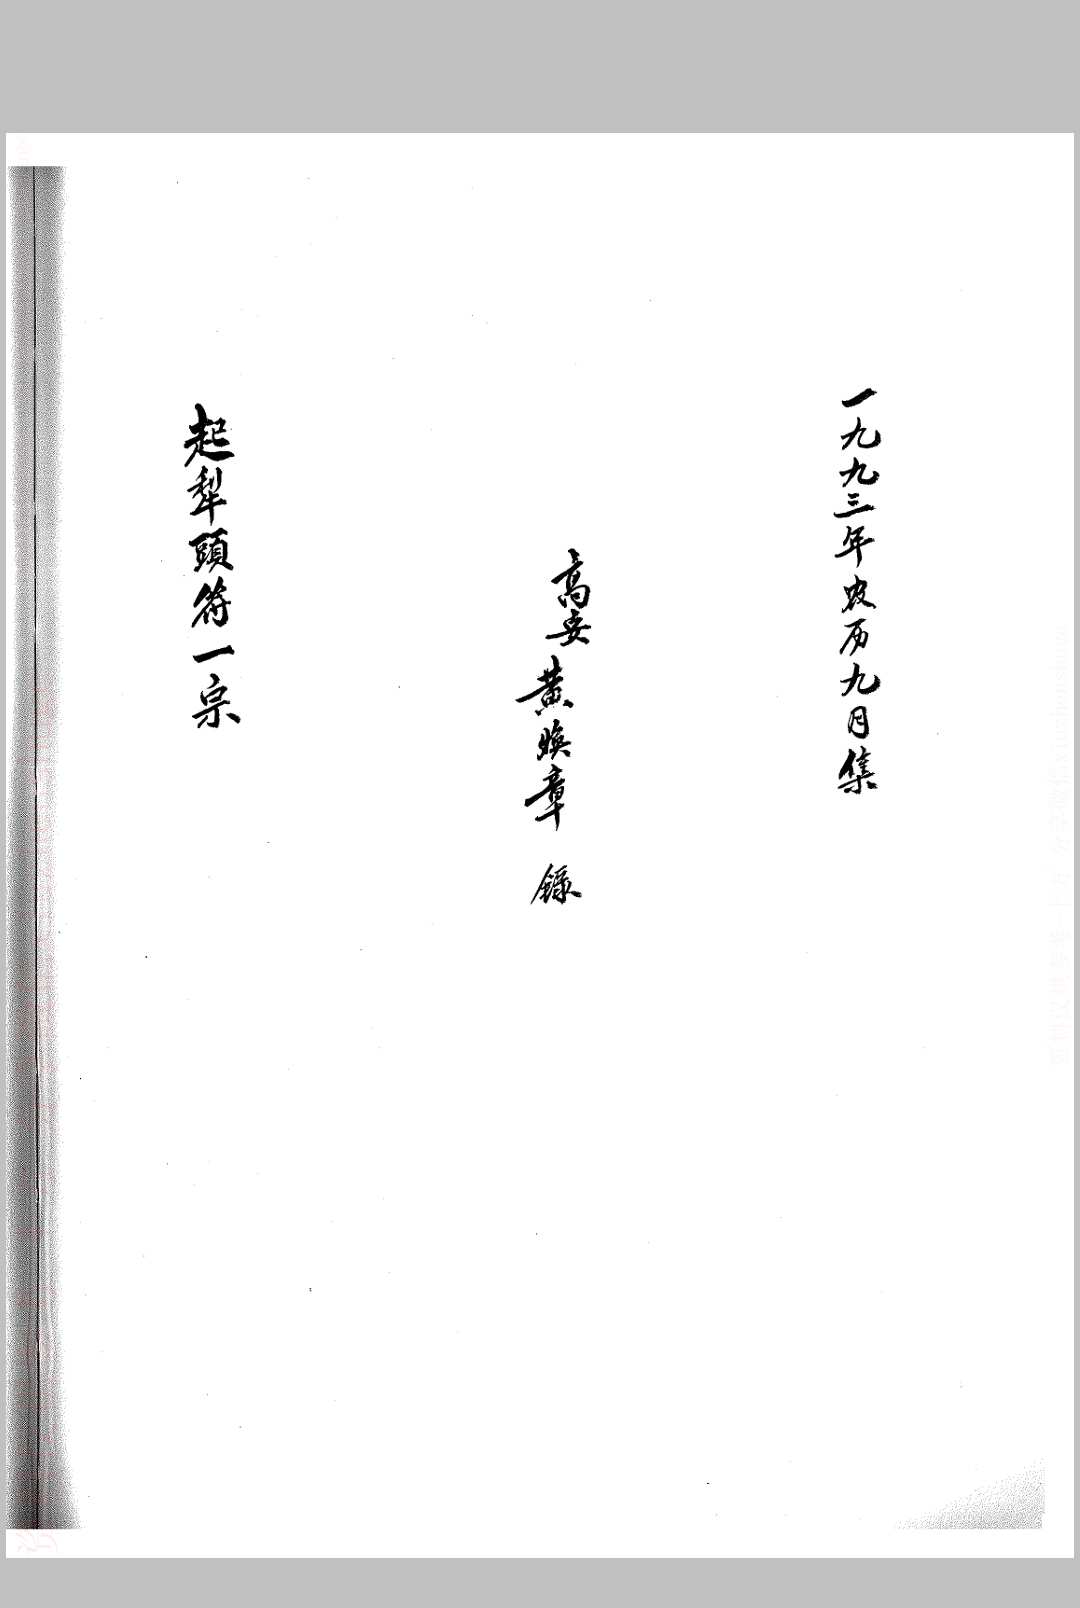 一九九三年农历九月集
高安黄焕章 録
起犁頭符一宗